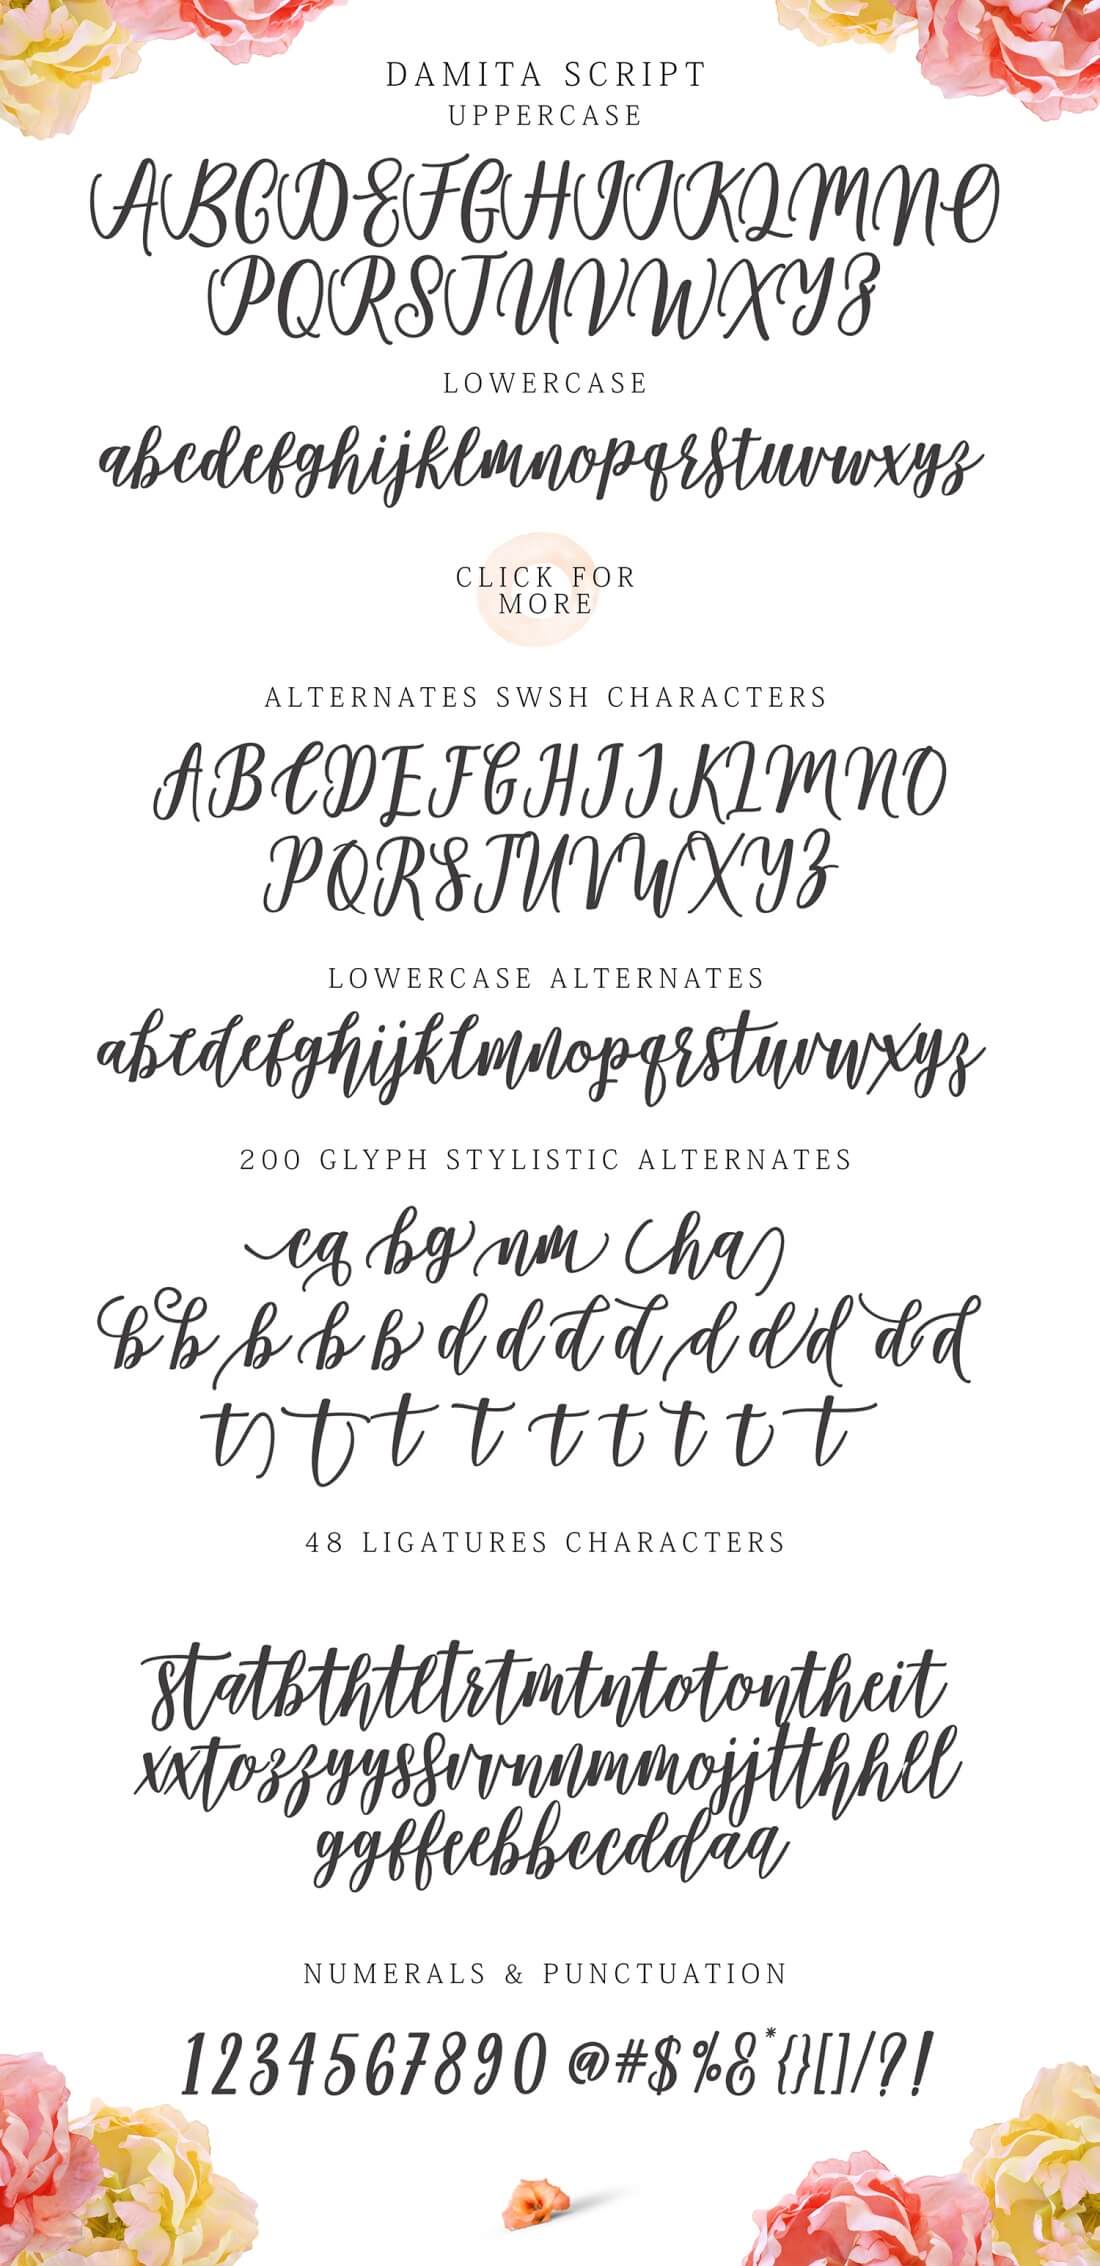 DAMITA SCRIPT
UPPERCASE
ABCDEFGHIJKLMNO
PQRSTUVWXYZ
LOWERCASE
abcdefghijklmnopqrstuvwxyz
CLICK FOR
MORE
ALTERNATES SWSH CHARACTERS
ABCDEFGHIJKLMNO
PQRSTUVWXYZ
LOWERCASE ALTERNATES
abcdefghijklmnopqrstuvwxyz
200 GLYPH STYLISTIC ALTERNATES
cq bg nm ha
bb b b b d d d d d d d d d
t t t t t t t t t
48 LIGATURES CHARACTERS
statbthtltrtmtntotontheit
xxtozzyyssvrrnnmmojjtthhll
ggffeebbccddaa
NUMERALS & PUNCTUATION
1234567890 @#$%&*{}[]/?!